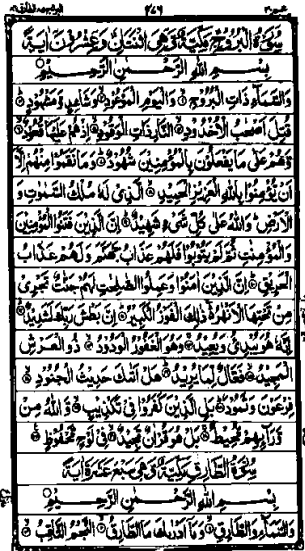 سورة البروج مكية وهي اثنتان وعشرون اية
بسم الله الرحمن الرحيم
والسماء ذات البروج واليوم الموعود وشاهد ومشهود
قتل اصحب الاخدود النار ذات الوقود اذ هم عليها قعود
وهم على ما يفعلون بالمؤمنين شهود وما نقموا منهم الا
ان يؤمنوا بالله العزيز الحميد الذي له ملك السموت و
الارض والله على كل شيء شهيد ان الذين فتنوا المؤمنين
والمؤمنت ثم لم يتوبوا فلهم عذاب جهنم ولهم عذاب
الحريق ان الذين امنوا وعملوا الصلحت لهم جنت تجري
من تحتها الانهر ذلك الفوز الكبير ان بطش ربك لشديد
انه هو يبدئ ويعيد وهو الغفور الودود ذو العرش
المجيد فعال لما يريد هل اتك حديث الجنود
فرعون وثمود بل الذين كفروا في تكذيب والله من
ورائهم محيط بل هو قران مجيد في لوح محفوظ
سورة الطارق مكية وهي سبع عشرة اية
بسم الله الرحمن الرحيم
والسماء والطارق وما ادرك ما الطارق النجم الثاقب